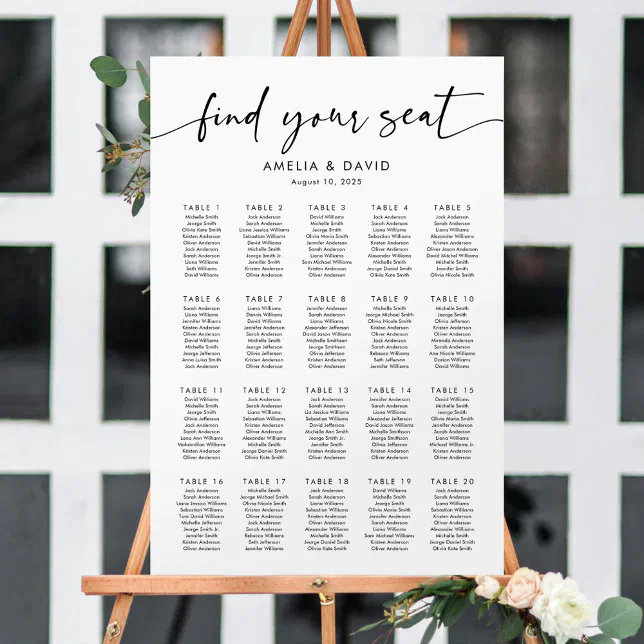 find your seat
AMELIA & DAVID
August 10, 2025
TABLE 1
Michelle Smith
Jeorge Smith
Olivia Kate Smith
Kristen Anderson
Oliver Anderson
Jack Anderson
Sarah Anderson
Liana Williams
Seth Williams
David Williams
TABLE 2
Jack Anderson
Sarah Anderson
Liana Jessica Williams
Sebastian Williams
David Williams
Michelle Smith
Jeorge Smith Jr.
Jennifer Smith
Kristen Anderson
Oliver Anderson
TABLE 3
David Williams
Michelle Smith
Jeorge Smith
Olivia Maria Smith
Jennifer Anderson
Sarah Anderson
Liana Williams
Sam Michael Williams
Kristen Anderson
Oliver Anderson
TABLE 4
Jack Anderson
Sarah Anderson
Liana Williams
Sebastian Williams
Oliver Anderson
Alexander Williams
Michelle Smith
Jeorge Daniel Smith
Olivia Kate Smith
TABLE 5
Jack Anderson
Sarah Anderson
Liana Williams
Alexander Williams
Kristen Anderson
Oliver Jason Anderson
David Michel Williams
Michelle Smith
Jennifer Smith
Olivia Nicole Smith
TABLE 6
Sarah Anderson
Liana Williams
Jennifer Williams
Kristen Anderson
Oliver Anderson
David Williams
Michelle Smith
Jeorge Jefferson
Anna Luisa Smith
Jack Anderson
TABLE 7
Liana Williams
Dennis Williams
David Williams
Jennifer Anderson
Oliver Anderson
Michelle Smith
Jeorge Smith
Olivia Jefferson
Kristen Anderson
Oliver Anderson
TABLE 8
Jack Anderson
Sarah Anderson
Liana Williams
Alexander Jefferson
David Williams
Michelle Smithson
Jeorge Smith
Olivia Jefferson
Kristen Anderson
Oliver Anderson
TABLE 9
Michelle Smith
Jeorge Michael Smith
Olivia Nicole Smith
Kristen Anderson
Oliver Anderson
Jack Anderson
Sarah Anderson
Rebecca Williams
Seth Jefferson
Jennifer Williams
TABLE 10
Michelle Smith
Jeorge Smith
Olivia Jefferson
Kristen Anderson
Oliver Anderson
Miranda Anderson
Sarah Anderson
Ann Nicole Williams
Darian Williams
David Williams
TABLE 11
David Williams
Michelle Smith
Jeorge Smith
Olivia Jefferson
Jack Anderson
Sarah Anderson
Lana Ann Williams
Maksimilian Williams
Kristen Anderson
Oliver Anderson
TABLE 12
Jack Anderson
Sarah Anderson
Liana Williams
Sebastian Williams
Kristen Anderson
Oliver Anderson
Alexander Williams
Michelle Smith
Jeorge Daniel Smith
Olivia Kate Smith
TABLE 13
Jack Anderson
Sarah Anderson
Lia Jessica Williams
Sebastian Williams
David Williams
Michelle Ann Smith
Jeorge Smith Jr.
Jennifer Smith
Kristen Anderson
Oliver Anderson
TABLE 14
Jennifer Anderson
Sarah Anderson
Liana Williams
Alexander Williams
David Jason Williams
Michelle Smith
Jeorge Smithson
Olivia Jefferson
Kristen Anderson
Oliver Anderson
TABLE 15
David Williams
Michelle Smith
Jeorge Smith
Olivia Jefferson
Kristen Anderson
Oliver Anderson
Jack Anderson
Sarah Anderson
Michael Williams Jr.
Liana Williams
TABLE 16
Jack Anderson
Sarah Anderson
Liana Jessica Williams
Sebastian Williams
Tom David Williams
Michelle Jefferson
Jeorge Smith Jr.
Jennifer Smith
Kristen Anderson
Oliver Anderson
TABLE 17
Michelle Smith
Jeorge Michael Smith
Olivia Nicole Smith
Kristen Anderson
Oliver Anderson
Jack Anderson
Sarah Anderson
Rebecca Williams
Seth Jefferson
Jennifer Williams
TABLE 18
Jack Anderson
Sarah Anderson
Liana Williams
Sebastian Williams
Kristen Anderson
Oliver Anderson
Alexander Williams
Michelle Smith
Jeorge Daniel Smith
Olivia Kate Smith
TABLE 19
David Williams
Michelle Smith
Jeorge Smith
Olivia Maria Smith
Jennifer Anderson
Sarah Anderson
Liana Williams
Sam Michael Williams
Kristen Anderson
Oliver Anderson
TABLE 20
Jack Anderson
Sarah Anderson
Liana Williams
Sebastian Williams
Kristen Anderson
Oliver Anderson
Alexander Williams
Michelle Smith
Jeorge Daniel Smith
Olivia Kate Smith